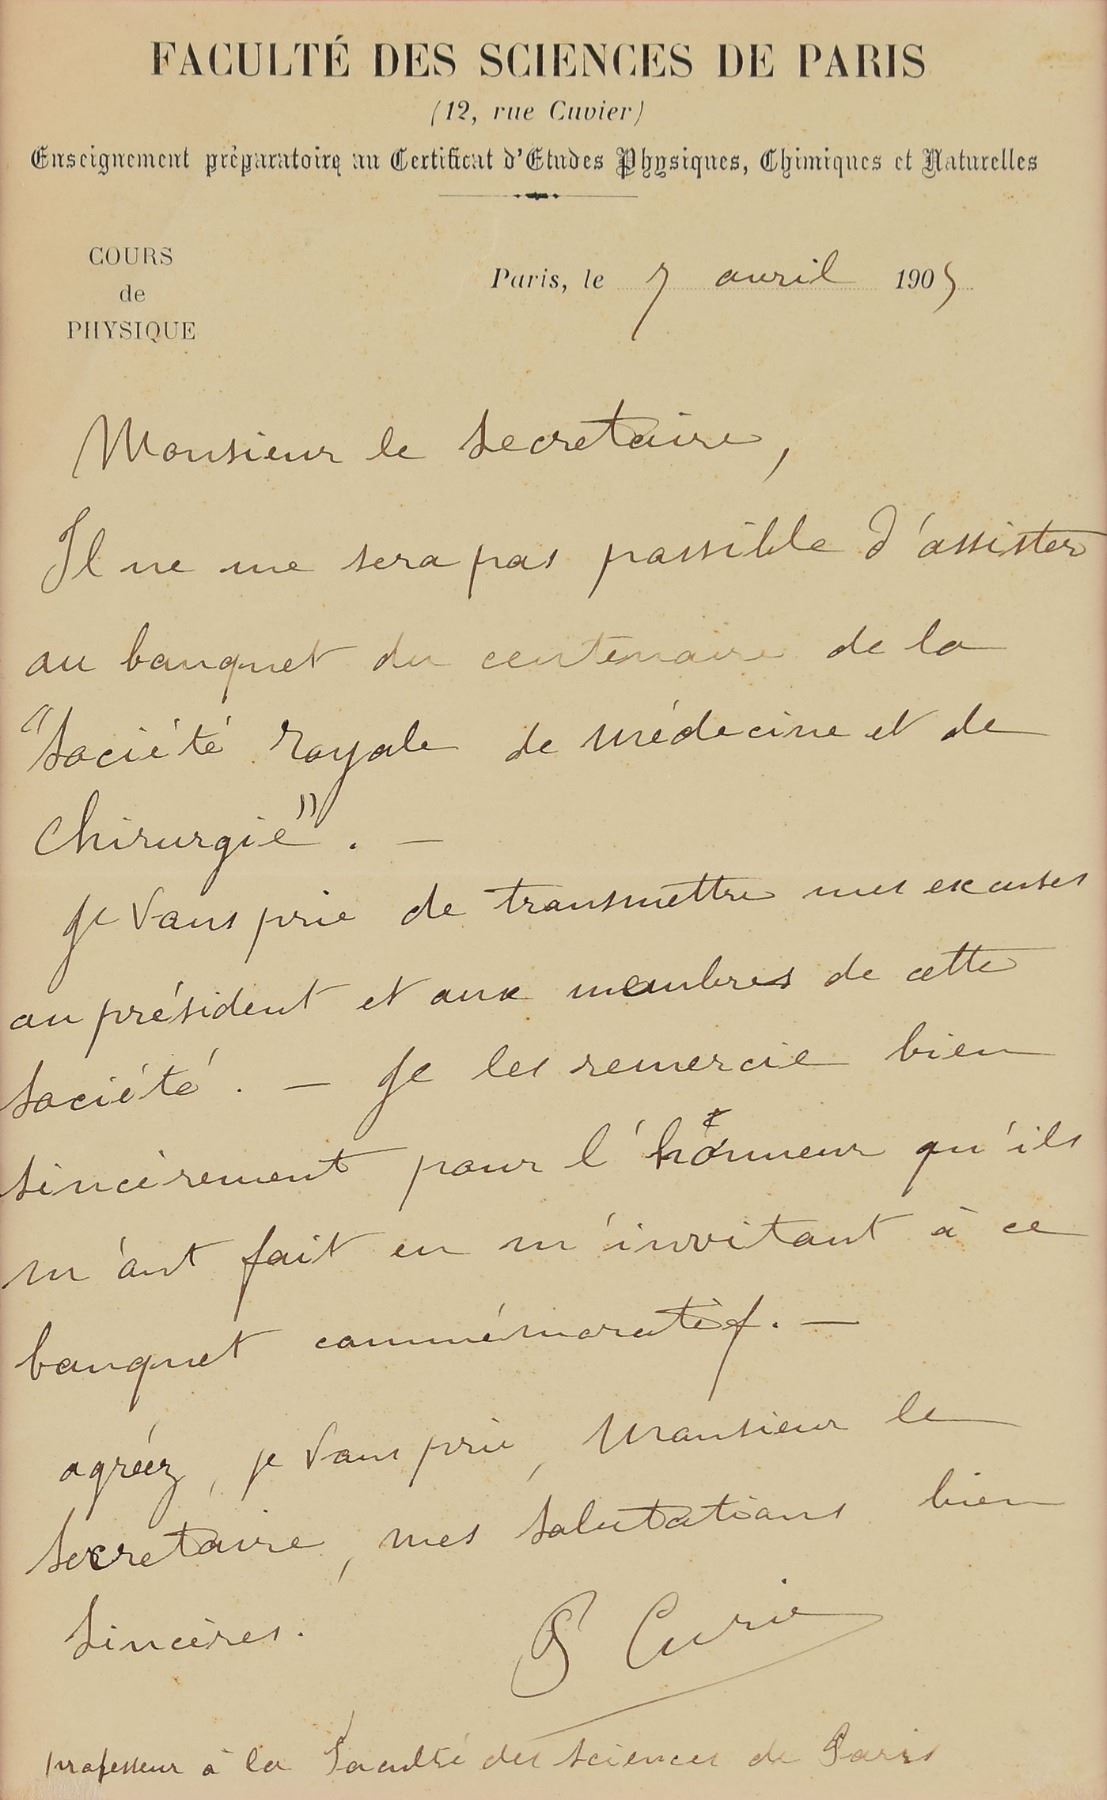 FACULTÉ DES SCIENCES DE PARIS
(12, rue Cuvier)
Enseignement préparatoire au Certificat d'Etudes Physiques, Chimiques et Naturelles
COURS
de
PHYSIQUE
Paris, le 7 avril 1905
Monsieur le Secretaire,
Il ne me sera pas possible d'assister
au banquet du centenaire de la
"Société royale de médecine et de
Chirurgie". —
Je vous prie de transmettre mes excuses
au président et aux membres de cette
Société. — Je les remercie bien
sincèrement pour l'honneur qu'ils
m'ont fait en m'invitant à ce
banquet commémoratif. —
agréez, je vous prie, Monsieur le
Secretaire, mes salutations bien
sincères.
P Curie
professeur à la Faculté des Sciences de Paris